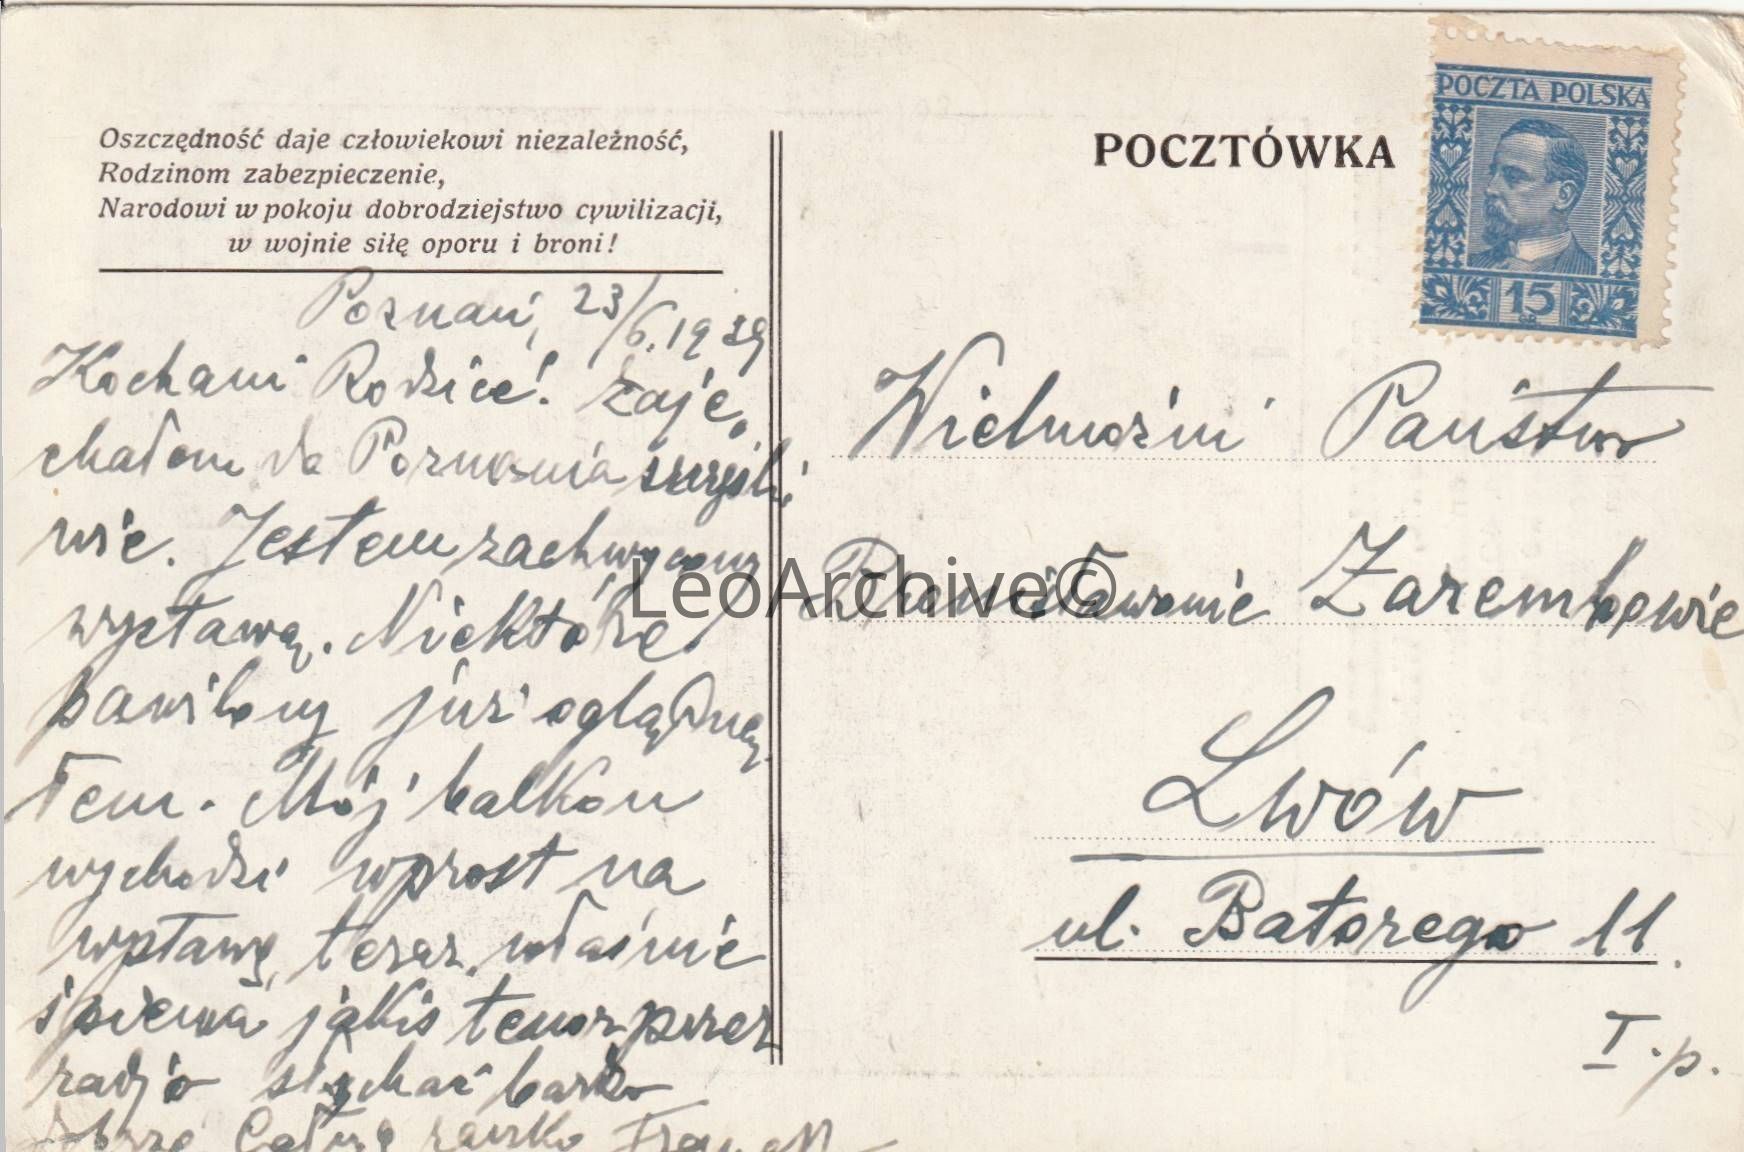 Oszczędność daje człowiekowi niezależność,
Rodzinom zabezpieczenie,
Narodowi w pokoju dobrodziejstwo cywilizacji,
w wojnie siłę oporu i broni!
POCZTÓWKA
POCZTA POLSKA
15
GR.
Poznań, 23/6. 1929
Kochani Rodzice! Zaje„
chałem do Poznania szczęśli
wie. Jestem zachwycony
wystawą. Niektóre
pawilony już oglądną
łem. Mój balkon
wychodzi wprost na
wystawę, teraz właśnie
śpiewa jakiś tenor przez
radjo słychać bardzo
dobrze. Całuję
Wielmożni Państwo
Bronisławowie Zarembowie
Lwów
ul. Batorego 11.
I. p.
LeoArchive©